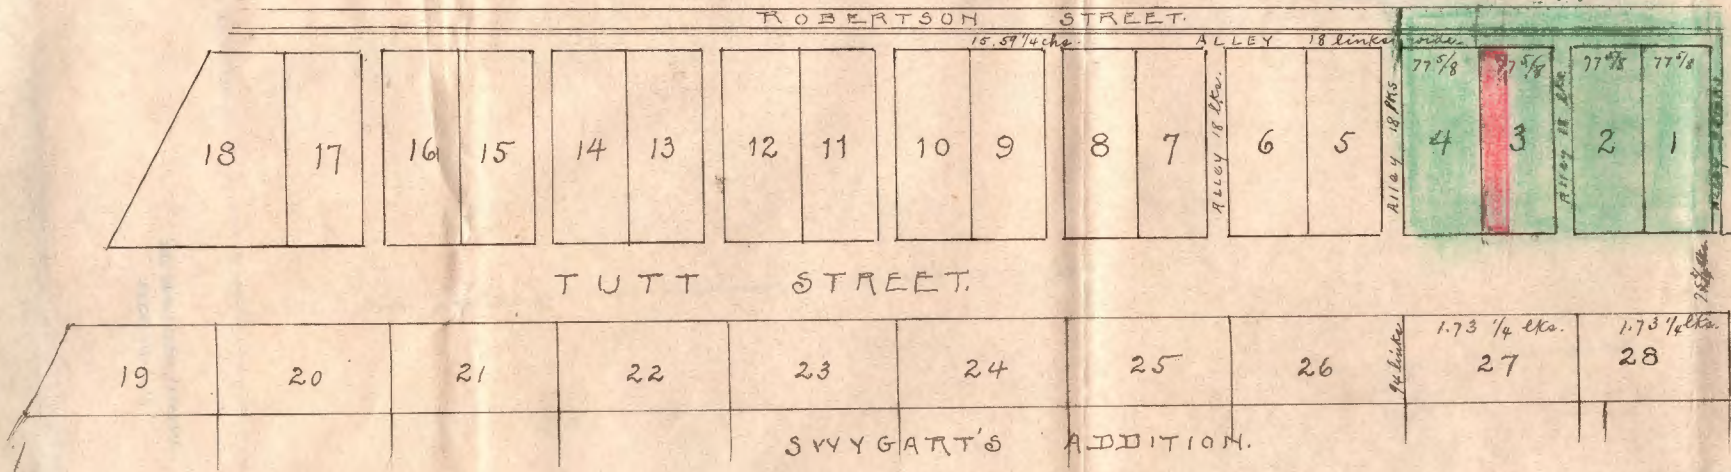 ROBERTSON STREET.
15.59 1/4 chs. ALLEY 18 links wide.
77 5/8 77 5/8 77 5/8 77 5/8
18 17 16 15 14 13 12 11 10 9 8 7 Alley 18 lks. 6 5 Alley 18 lks 4 3 Alley 18 lks. 2 1
TUTT STREET.
94 links 1.73 1/4 lks. 1.73 1/4 lks.
19 20 21 22 23 24 25 26 27 28
SWYGART'S ADDITION.